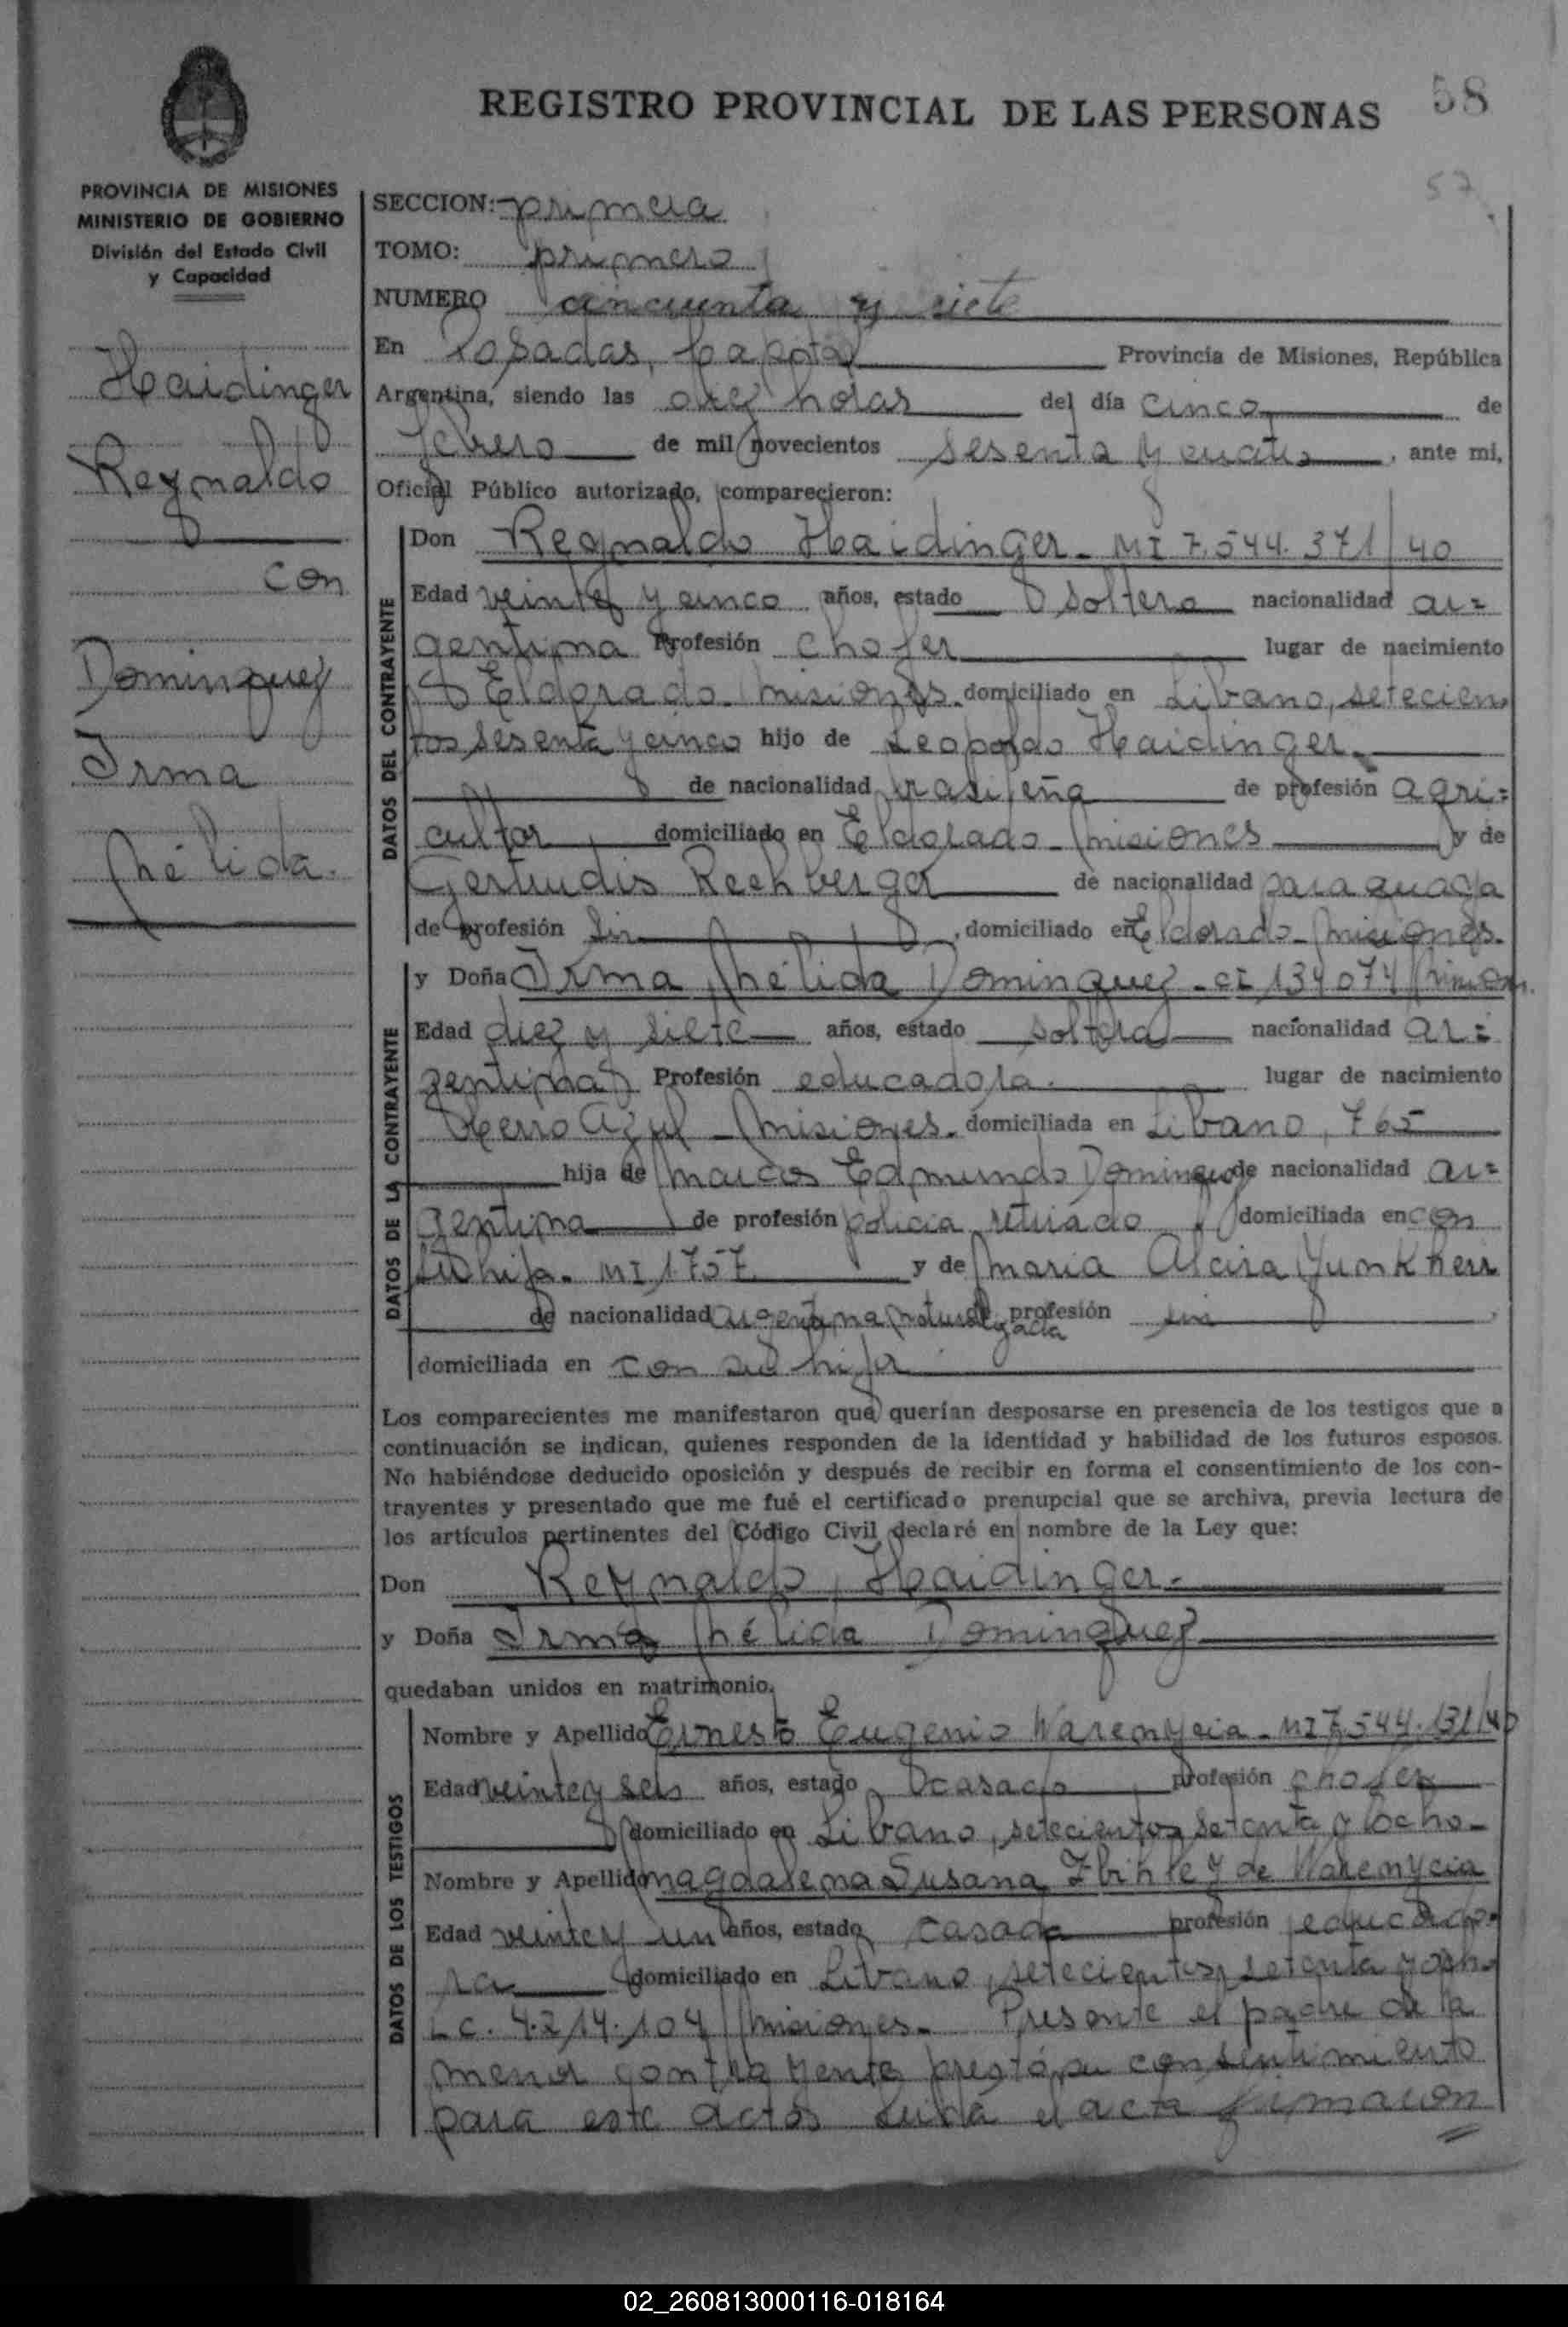 REGISTRO PROVINCIAL DE LAS PERSONAS
58
57
PROVINCIA DE MISIONES
MINISTERIO DE GOBIERNO
División del Estado Civil
y Capacidad
Haidinger
Reynaldo
con
Dominguez
Irma
Nélida.
SECCION: primera
TOMO: primero
NUMERO cincuenta y siete
En Posadas, Capital Provincia de Misiones, República
Argentina, siendo las diez horas del día cinco de
febrero de mil novecientos sesenta y cuatro, ante mi,
Oficial Público autorizado, comparecieron:
DATOS DEL CONTRAYENTE
Don Reynaldo Haidinger - MI 7.544.371/40
Edad veinte y cinco años, estado soltero nacionalidad ar=
gentina Profesión chofer lugar de nacimiento
Eldorado - Misiones. domiciliado en Libano, setecien
tos sesenta y cinco hijo de Leopoldo Haidinger
de nacionalidad brasileña de profesión agri=
cultor domiciliado en Eldorado - Misiones y de
Gertrudis Rechberger de nacionalidad paraguaya
de profesión sin, domiciliado en Eldorado - Misiones.
DATOS DE LA CONTRAYENTE
y Doña Irma Nélida Dominguez - CI 134074
Edad diez y siete años, estado soltera nacionalidad ar=
gentina Profesión educadora. lugar de nacimiento
Cerro Azul - Misiones. domiciliada en Libano, 765
hija de Marcos Edmundo Dominguez de nacionalidad ar=
gentina de profesión policia retirado, domiciliada en con
su hija. MI 1757 y de Maria Alcira Yunkherr
de nacionalidad argentina naturalizada de profesión sin
domiciliada en con su hija
Los comparecientes me manifestaron que querían desposarse en presencia de los testigos que a
continuación se indican, quienes responden de la identidad y habilidad de los futuros esposos.
No habiéndose deducido oposición y después de recibir en forma el consentimiento de los con-
trayentes y presentado que me fué el certificado prenupcial que se archiva, previa lectura de
los artículos pertinentes del Código Civil declaré en nombre de la Ley que:
Don Reynaldo Haidinger.-
y Doña Irma Nélida Dominguez
quedaban unidos en matrimonio.
DATOS DE LOS TESTIGOS
Nombre y Apellido Ernesto Eugenio Warenycia - MI 7.544.131/40
Edad veinte y seis años, estado casado profesión chofer
domiciliado en Libano, setecientos setenta y ocho-
Nombre y Apellido Magdalena Susana de Warenycia
Edad veinte y un años, estado casada profesión educado-
ra domiciliado en Libano, setecientos setenta y ocho
L.C. 4.214.104 Misiones.- Presente el padre de la
menor contrayente prestó su consentimiento
para este acto. Leida el acta firmaron
02_260813000116-018164